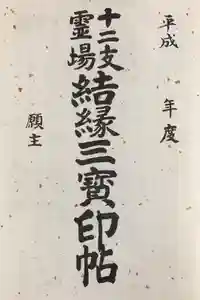 平成　年度
十二支
霊場
結縁三寳印帖
願主